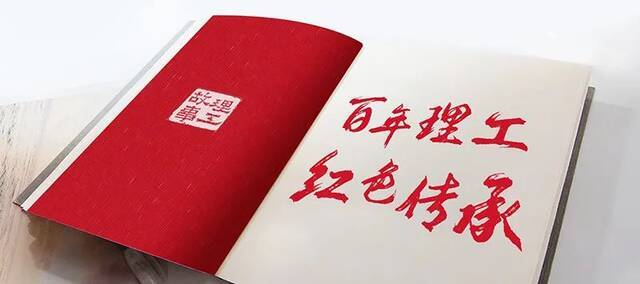 理工
故事
百年理工
红色传承